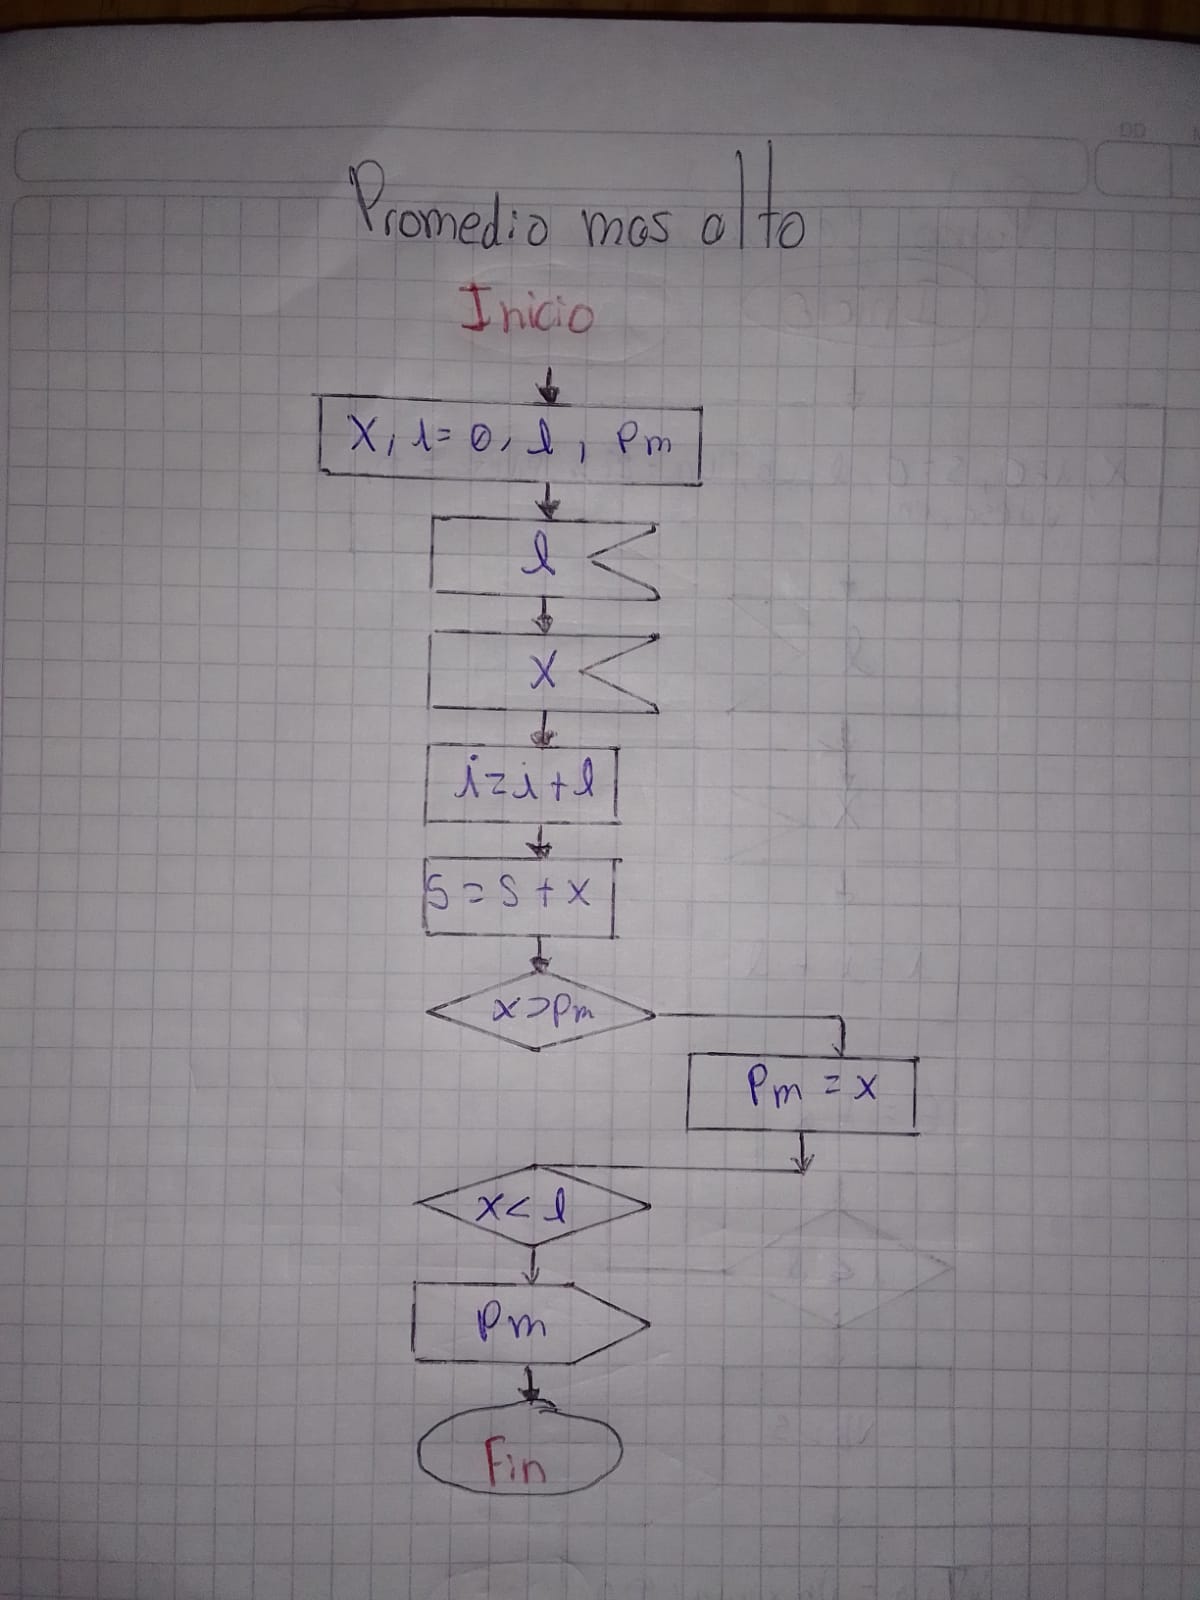 Promedio mas alto
Inicio
X, i=0, l, Pm
l
X
i=i+l
S=S+x
x>Pm
Pm=x
x<l
Pm
Fin